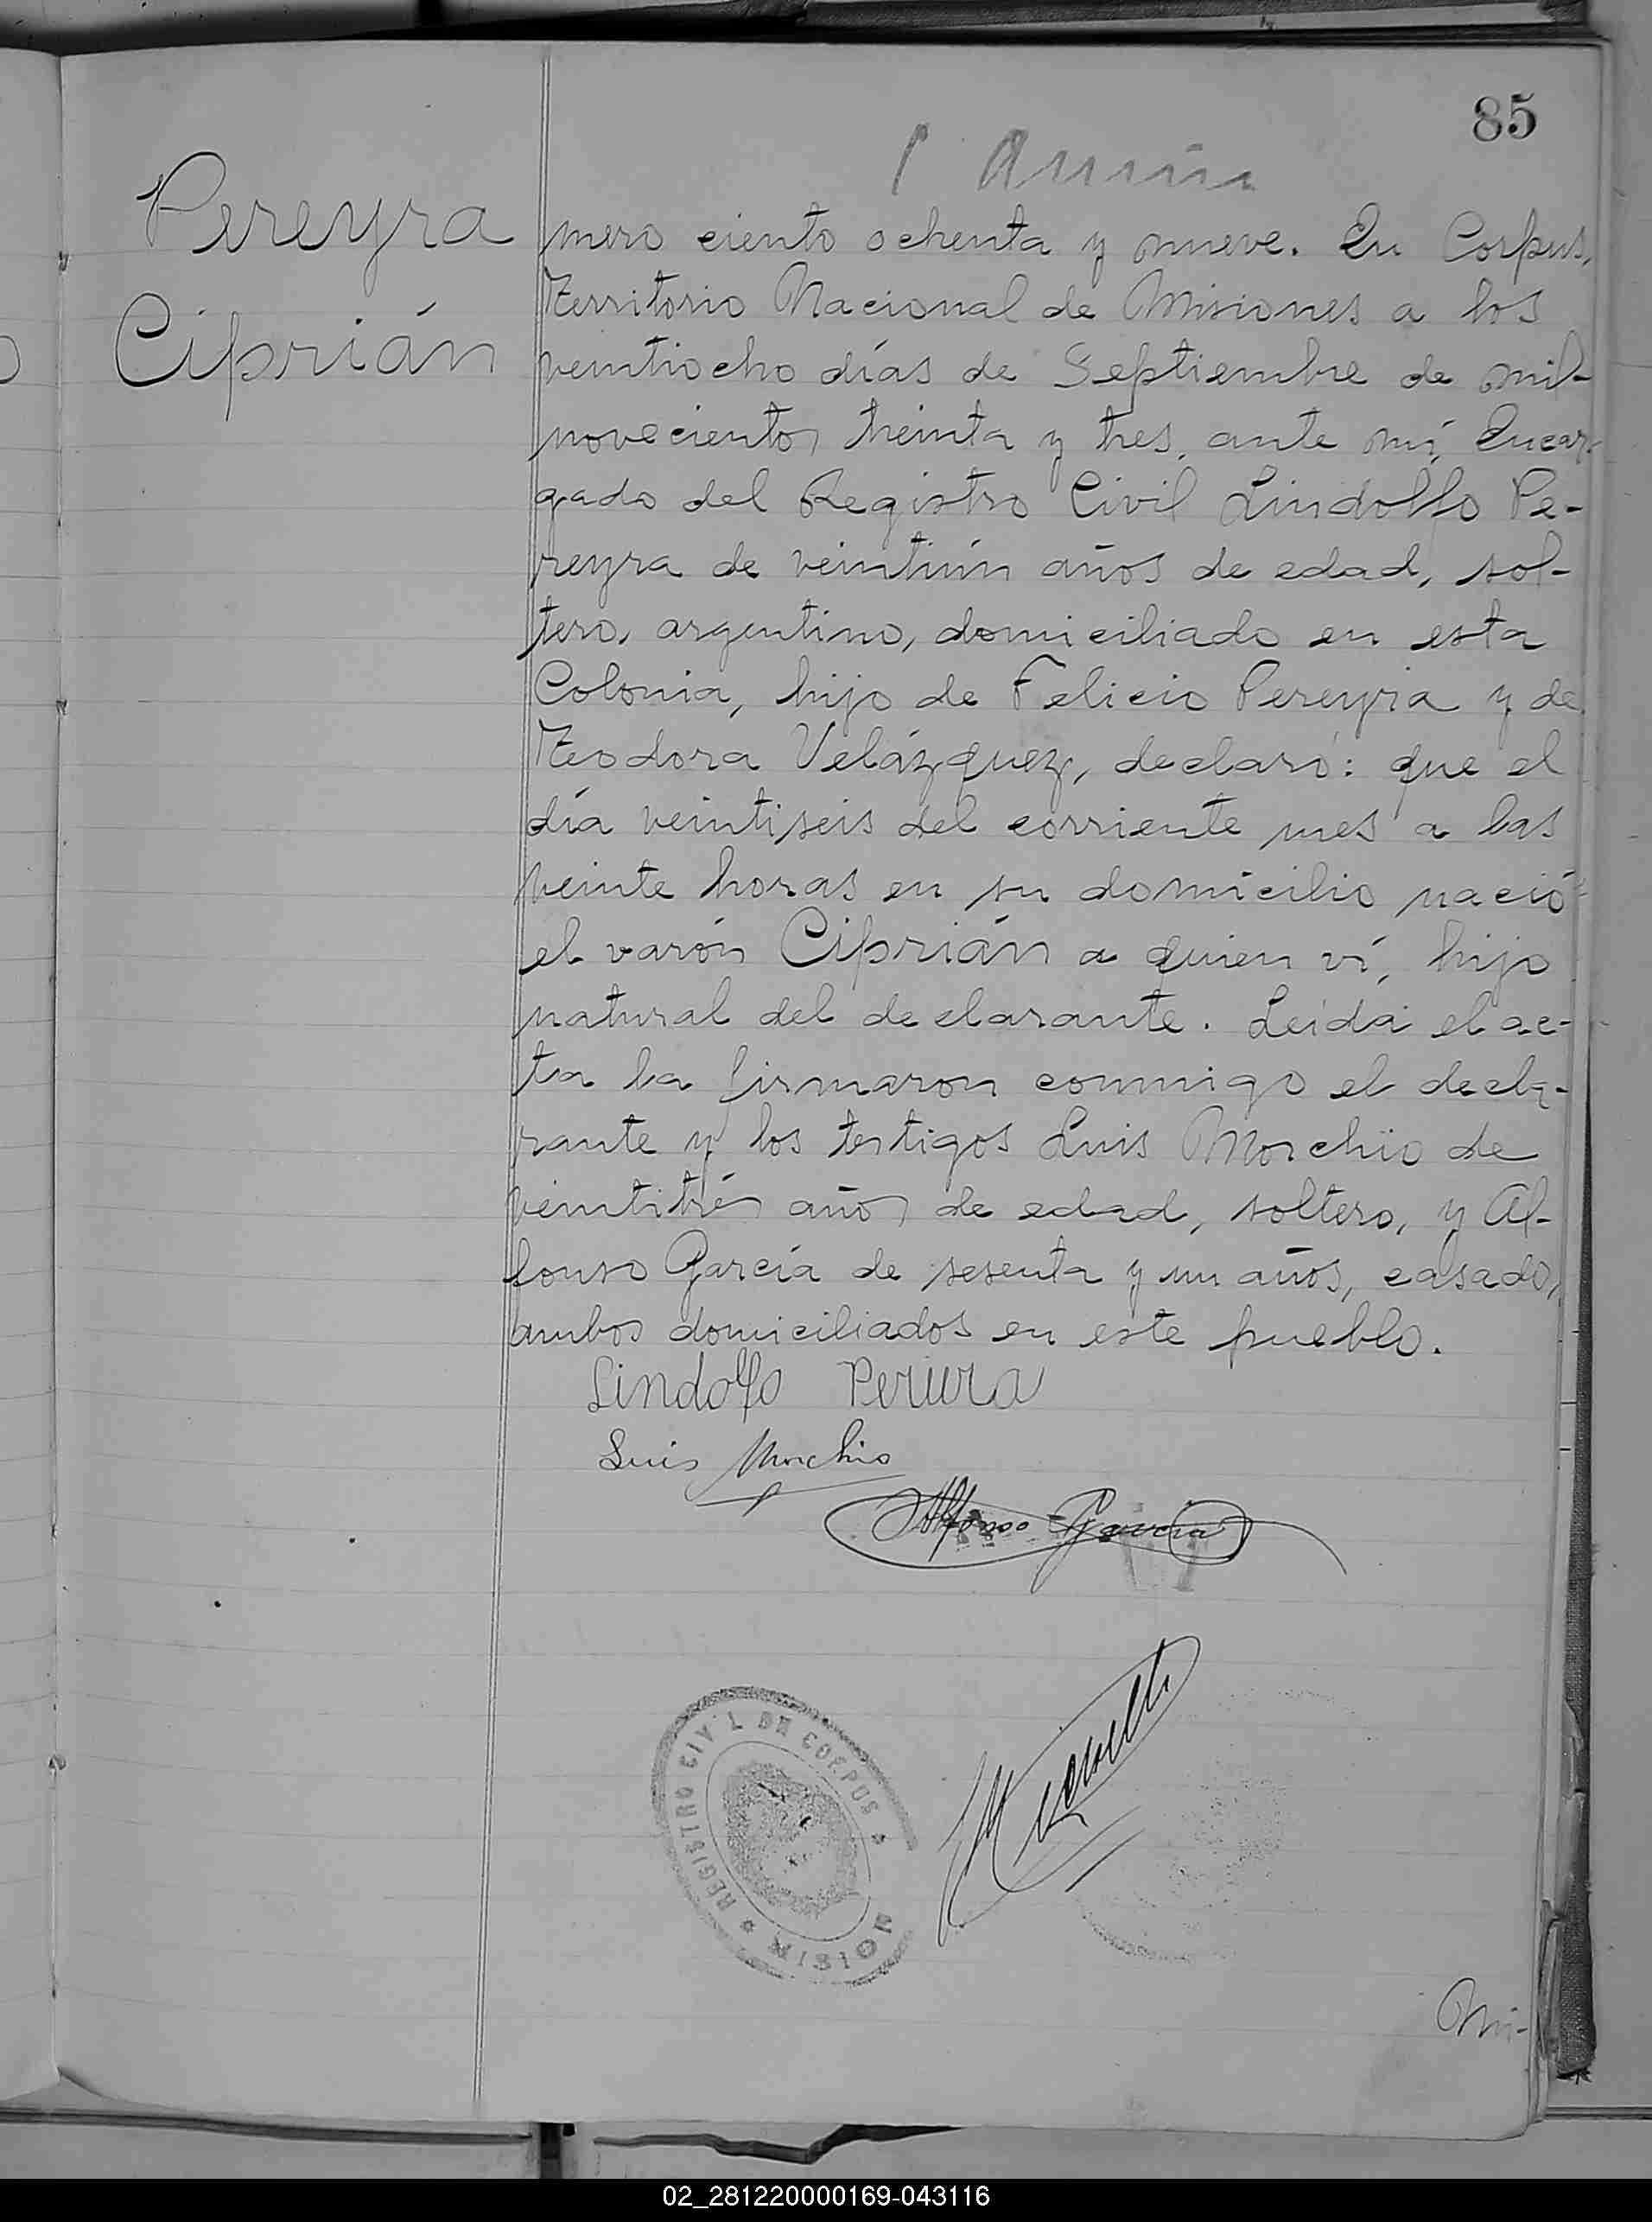 85
Pereyra
Ciprián
mero ciento ochenta y nueve. En Corpus,
Territorio Nacional de Misiones a los
veintiocho días de Septiembre de mil
novecientos treinta y tres, ante mí, Encar-
gado del Registro Civil Lindolfo Pe-
reyra de veintiún años de edad, sol-
tero, argentino, domiciliado en esta
Colonia, hijo de Felicio Pereyra y de
Teodora Velázquez, declaró: que el
día veintiseis del corriente mes a las
veinte horas en su domicilio nació
el varón Ciprián a quien ví, hijo
natural del declarante. Leída el ac-
ta la firmaron conmigo el decla-
rante y los testigos Luis Morchio de
veintitrés años de edad, soltero, y Al-
fonso García de sesenta y un años, casado,
ambos domiciliados en este pueblo.
Lindolfo Pereira
Luis Morchio
Alfonso Garcia
REGISTRO CIVIL DE CORPUS
MISION
Nú-
02_281220000169-043116